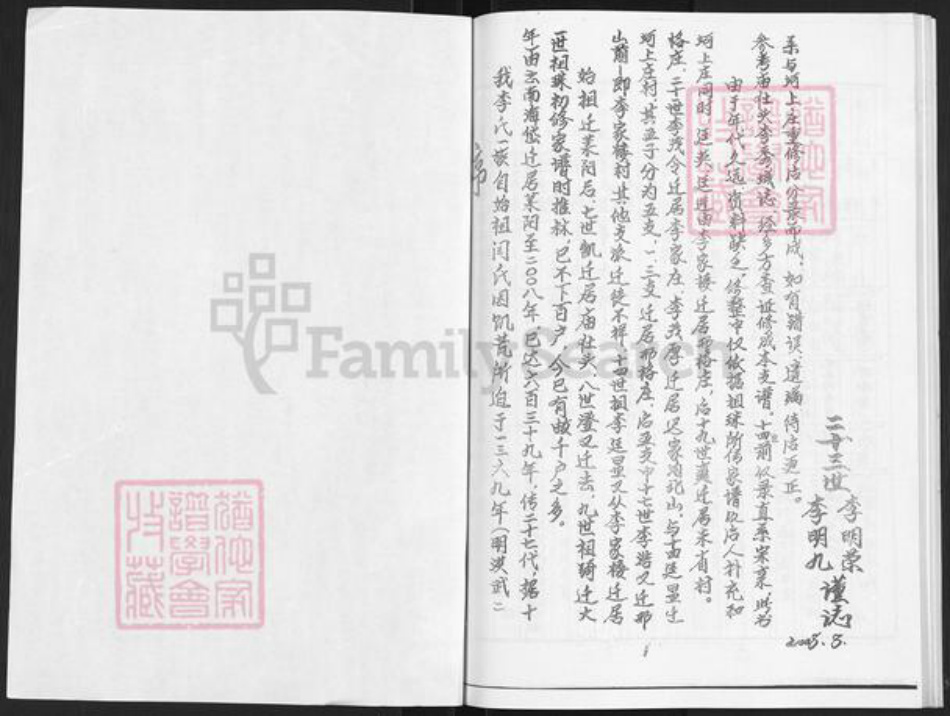 序
我李氏一族自始祖闰氏因饥荒所迫于一三六九年(明洪武二
年)由云南海岱迁居莱阳至二〇〇八年,已达六百三十九年,传二十七代,据十
一世祖珠初修家谱时推林,已不下百户,今已有数千户之多。
始祖迁莱阳后,七世凯迁居庙社头,八世澄又迁去,九世祖琦迁大
山前—即李家楼村,其他支派迁徙不祥,十四世祖李廷显又从李家楼迁居
河上庄村,其五子分为五支,一、三支迁居邢格庄,后五支中十七世李浩又迁邢
格庄,二十世李茂令迁居李家庄,李茂厚迁居迟家沟北山,与李廷显迁
河上庄同时,廷 廷进由李家楼迁居邢格庄,后十九世 迁居朱省村。
由于年代久远,资料缺乏,修整中仅依据祖珠所修家谱及后人补充和
参考庙社头李 诚志,经多方查证修成本支谱,十四世前仅录直系宗亲,此为
系与河上庄重修后分录而成,如有错误、遗漏待后更正。
二十三世 李明荣
李明九 谨志
2008.8.
FamilySearch